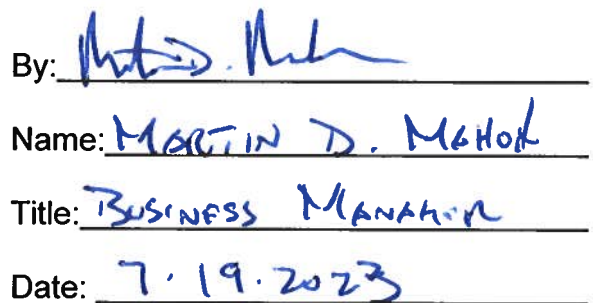 By:
Name: MARTIN D. MAHON
Title: BUSINESS MANAGER
Date: 7.19.2023